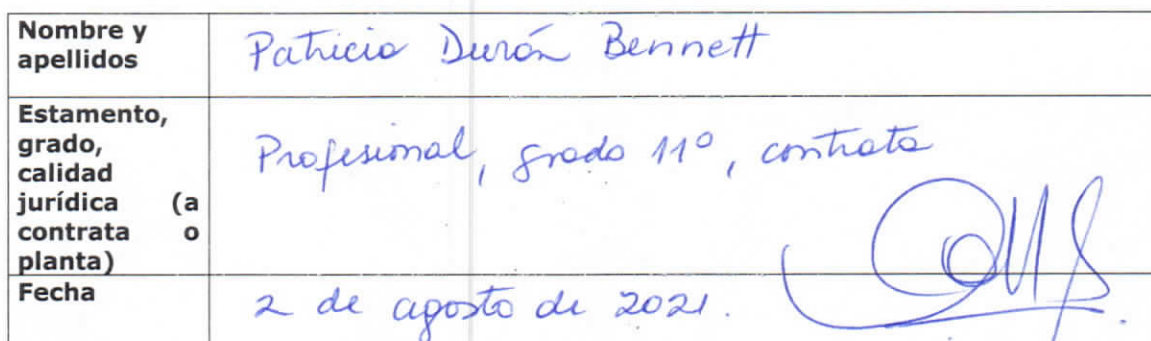 Nombre y
apellidos
Patricia Durán Bennett
Estamento,
grado,
calidad
jurídica (a
contrata o
planta)
Profesional, grado 11º, contrata
Fecha
2 de agosto de 2021.